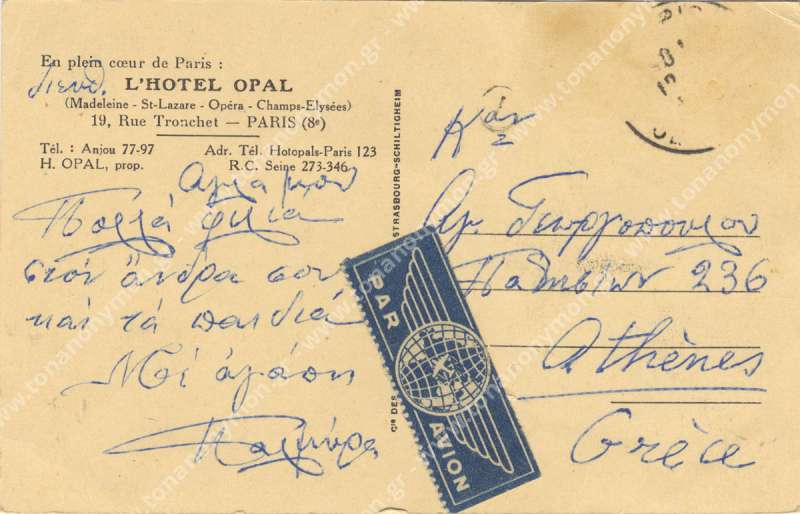 En plein cœur de Paris :
Διευθ.
L'HOTEL OPAL
(Madeleine - St-Lazare - Opéra - Champs-Elysées)
19, Rue Tronchet — PARIS (8e)
Tél. : Anjou 77-97 Adr. Tél. Hotopals-Paris 123
H. OPAL, prop. R.C. Seine 273-346
μου
Πολλά φιλιά
στον άνδρα σου
και τα παιδιά
Μέ αγάπη
Cie DES
STRASBOURG-SCHILTIGHEIM
PAR AVION
Καν
Αγ. Γεωργοπούλου
Πατησίων 236
Athènes
Grèce
www.tonanonymon.gr - www.tonanonymon.gr